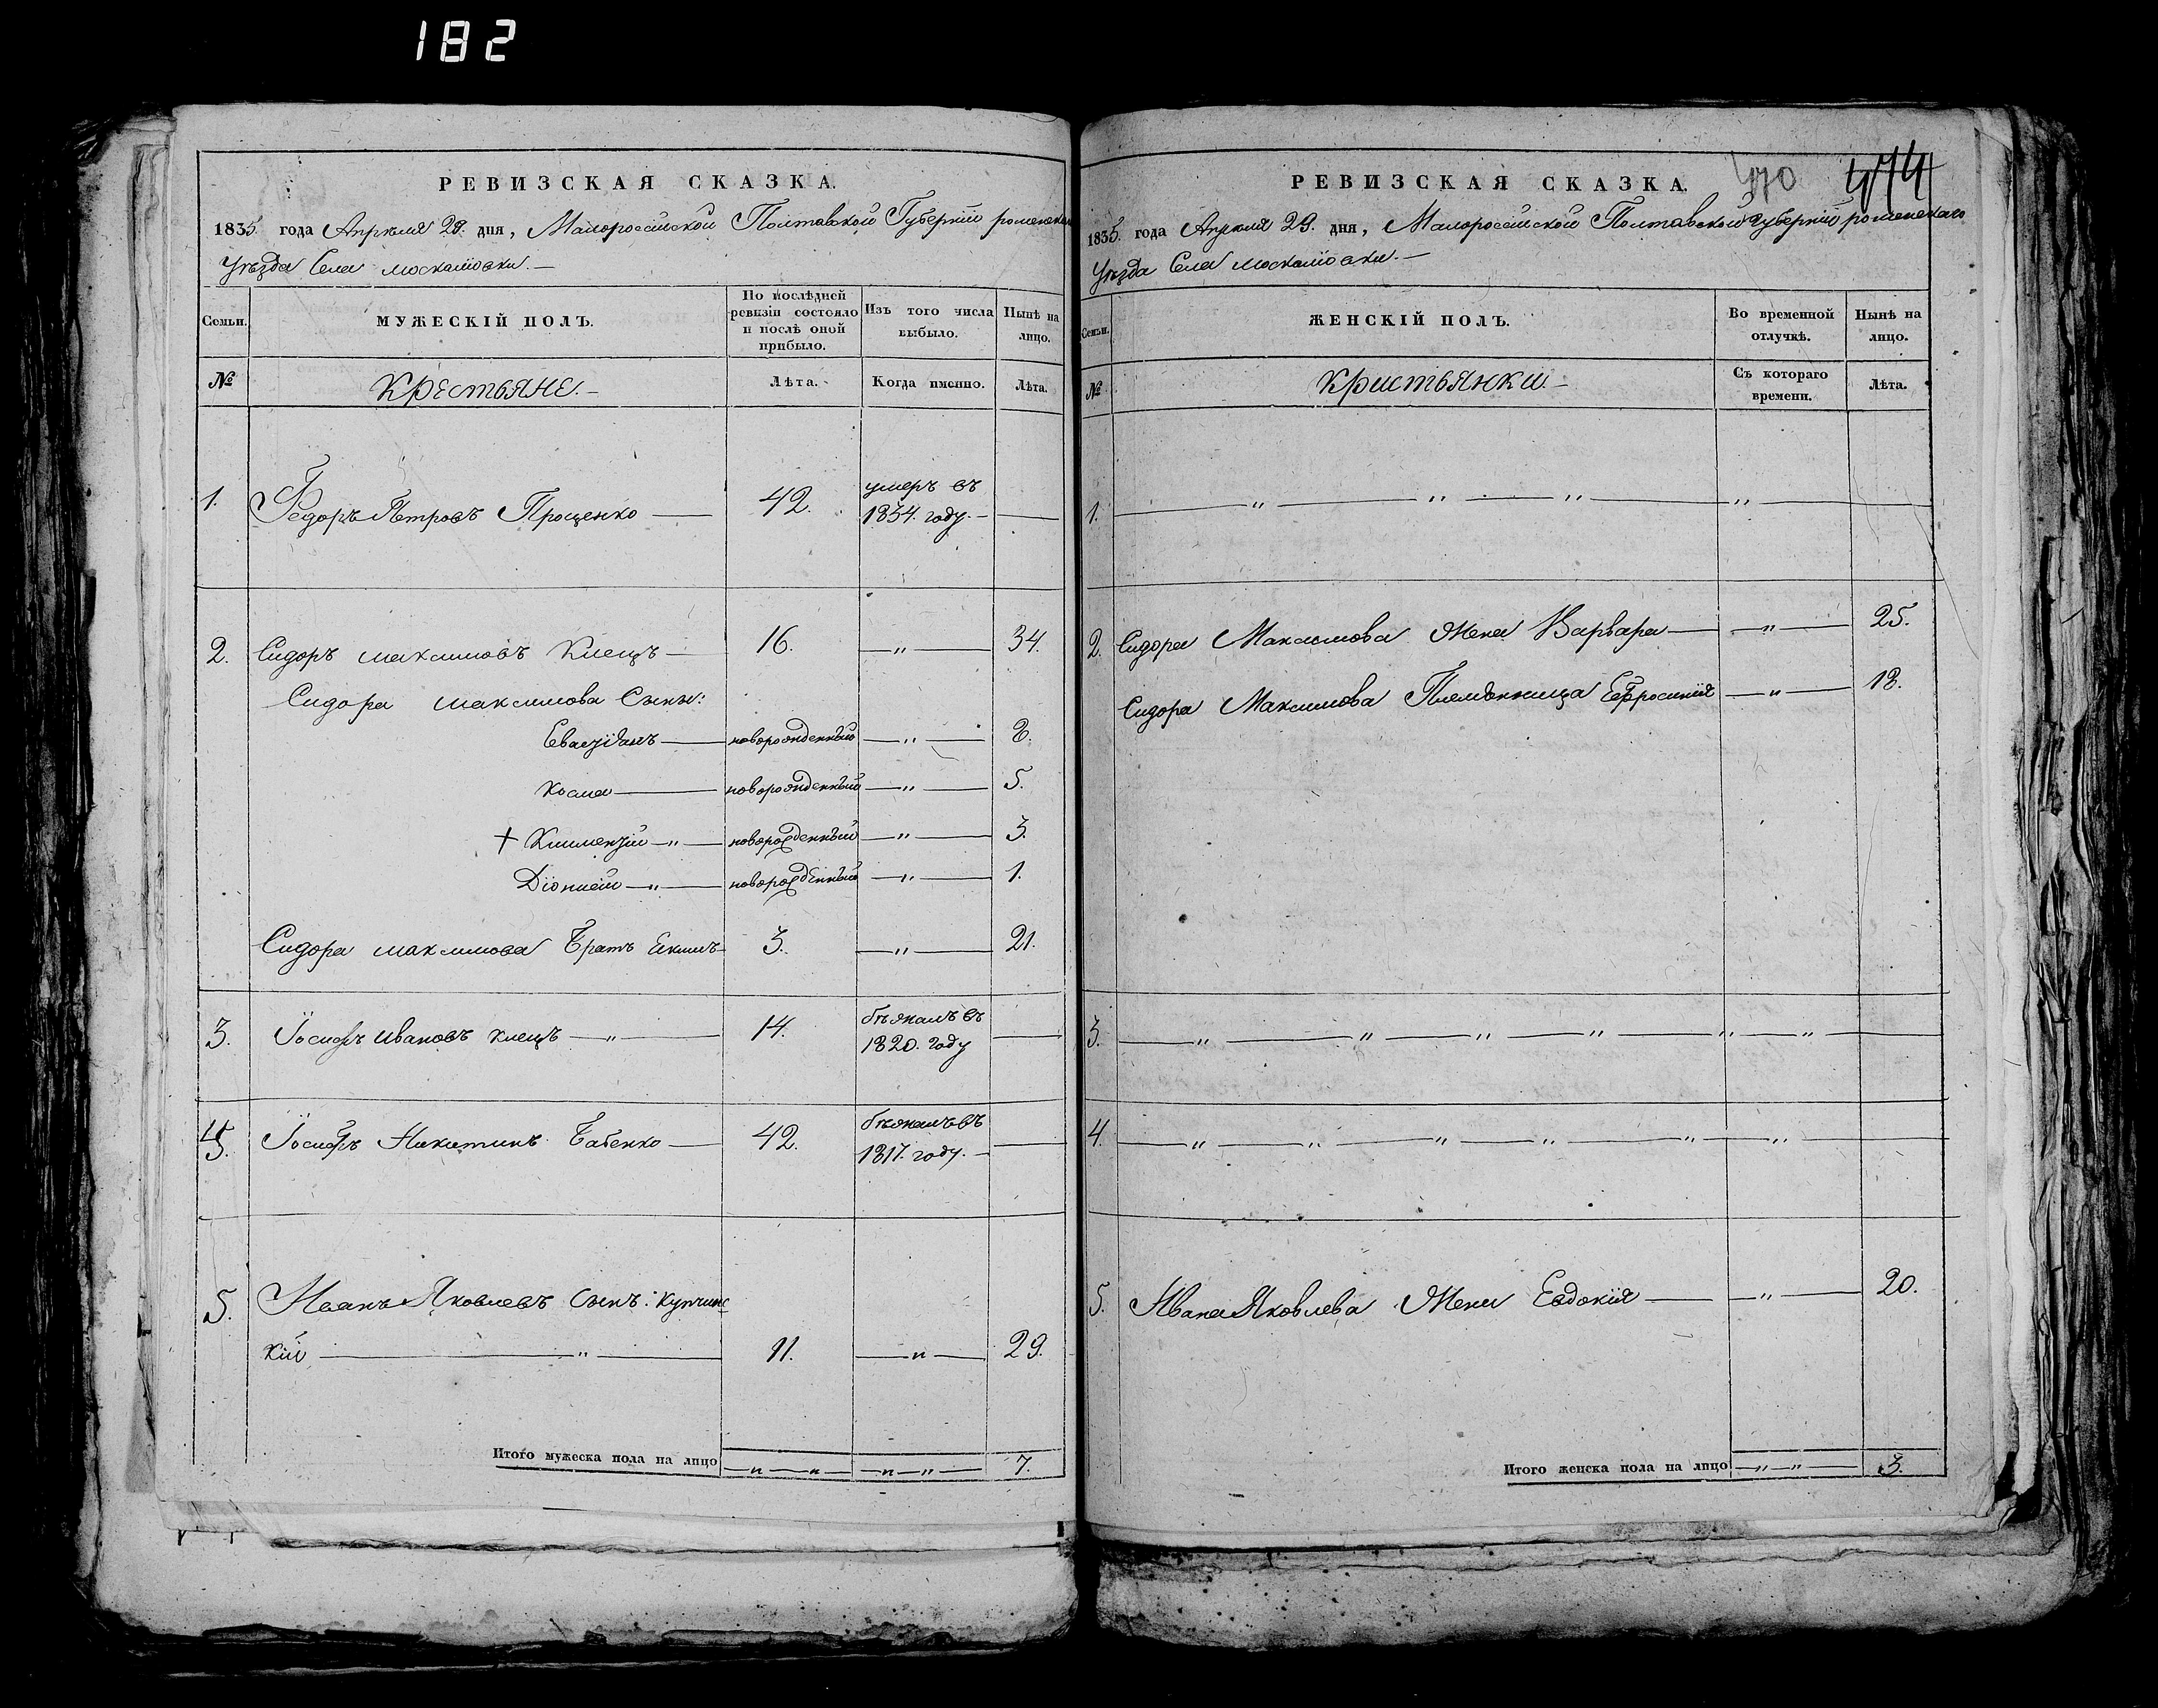 182
РЕВИЗСКАЯ СКАЗКА.
1835. года Апреля 29. дня, Малороссійской Полтавской Губерніи роменскаго
Уезда Села москалювки.—
Семьи. МУЖЕСКІЙ ПОЛЪ. По послѣдней ревизіи состояло и послѣ оной прибыло. Изъ того числа выбыло. Нынѣ на лицо.
№ Крестьяне.— Лѣта. Когда именно. Лѣта.
1. Федоръ Петровъ Проценко — 42. умеръ въ 1834. году.— —
2. Сидоръ максимовъ Клецъ — 16. — „ — 34.
Сидора максимова Сыны:
— новорожденный — „ —
Косма — новорожденный — „ — 5.
+ Климентій — „ — новорожденный — „ — 3.
Діонисій — „ — новорожденный — „ — 1.
Сидора максимова Братъ Екимъ — 3. — „ — 21.
3. Іосифъ Ивановъ клецъ — „ — 14. бѣжалъ въ 1820. году —
4. 5. Іосифъ Никитинъ Бабенко — 42. бѣжалъ въ 1817. году.— —
5. Иванъ Яковлевъ сынъ Купчинс
кій — „ — 11. — „ — 29.
Итого мужеска пола на лицо — „ — „ — „ — „ — 7.
470 474
РЕВИЗСКАЯ СКАЗКА.
1835. года Апреля 29. дня, Малороссійской Полтавской Губерніи роменскаго
Уезда Села москалювки.—
Семьи. ЖЕНСКІЙ ПОЛЪ. Во временной отлучкѣ. Нынѣ на лицо.
№ Кристьянки.— Съ котораго времени. Лѣта.
1. — „ — „ — „ — „ —
2. Сидора Максимова Жена Варвара — „ — 25.
Сидора Максимова Племянница Ефросинія — „ — 18.
3. — „ — „ — „ — „ — „ — „ —
4. — „ — „ — „ — „ — „ — „ —
5. Ивана Яковлева Жена Евдокія — „ — 20.
Итого женска пола на лицо — „ — „ — 3.